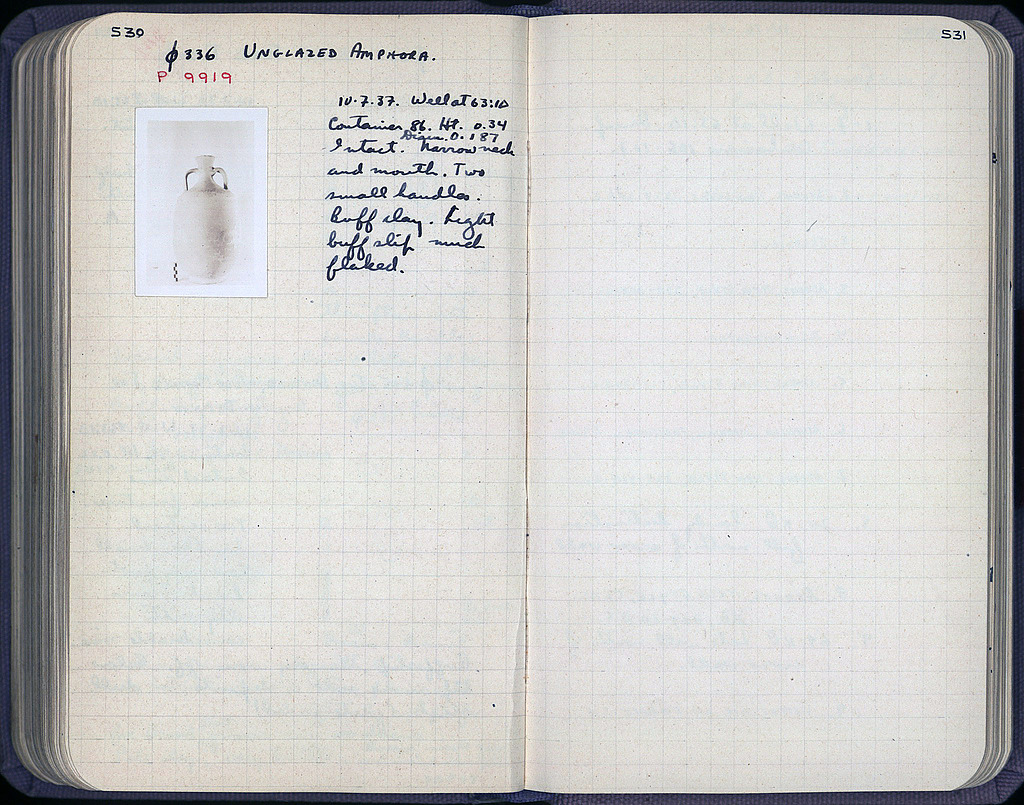 530
ϕ 336 UNGLAZED AMPHORA.
P 9919
10.7.37. Well at 63:10
Container 86. Ht. 0.34
Diam. 0.187
Intact. Narrow neck
and mouth. Two
small handles.
Buff clay. Light
buff slip much
flaked.
531